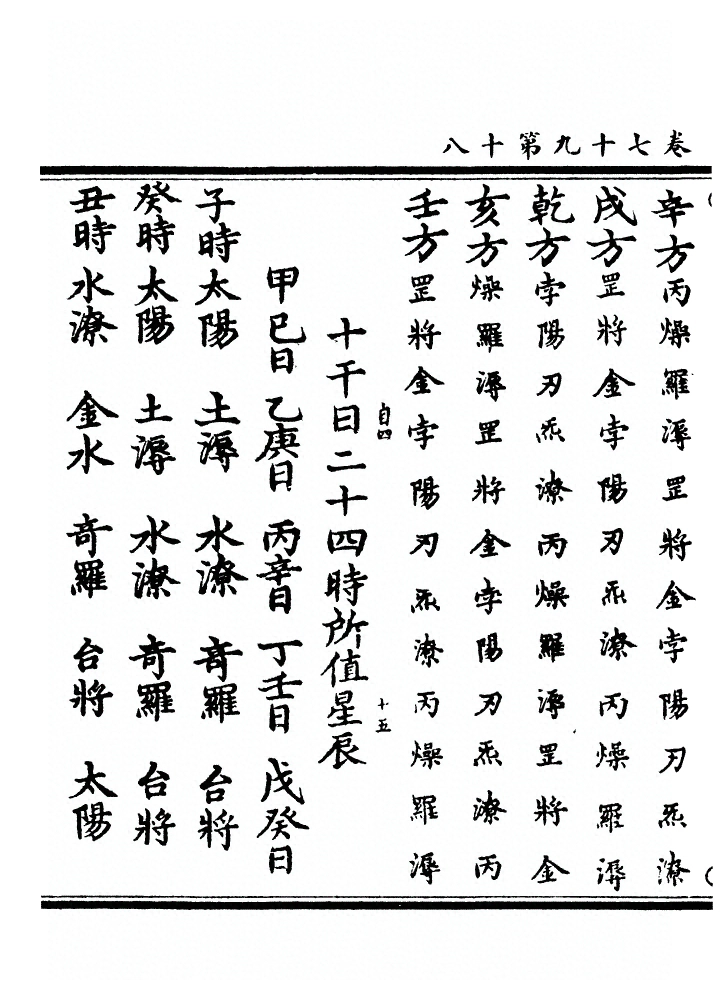 卷七十九第十八
辛方丙燥羅溽罡將金孛陽刃炁潦
戌方罡將金孛陽刃炁潦丙燥羅溽
乾方孛陽刃炁潦丙燥羅溽罡將金
亥方燥羅溽罡將金孛陽刃炁潦丙
壬方罡將金孛陽刃炁潦丙燥羅溽
自四 十五
十干日二十四時所值星辰
甲巳日 乙庚日 丙辛日 丁壬日 戊癸日
子時太陽 土溽 水潦 奇羅 台將
癸時太陽 土溽 水潦 奇羅 台將
丑時水潦 金水 奇羅 台將 太陽